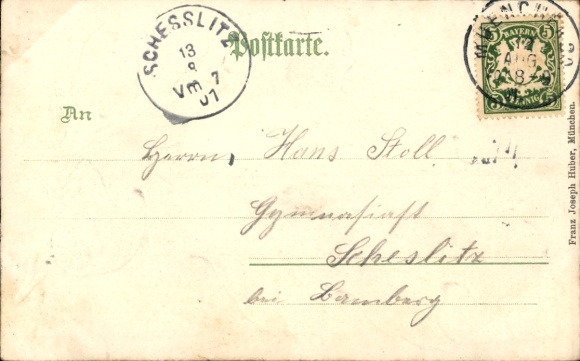 SCHESSLITZ
13
8
Vm 7
01
Postkarte.
MUENCHEN
12
AUG
8-9
5 BAYERN 5
5 PFENNIG 5
An
Herrn
Hans Stoll
Gymnasiast
Scheslitz
bei Bamberg
Franz Joseph Huber, München.